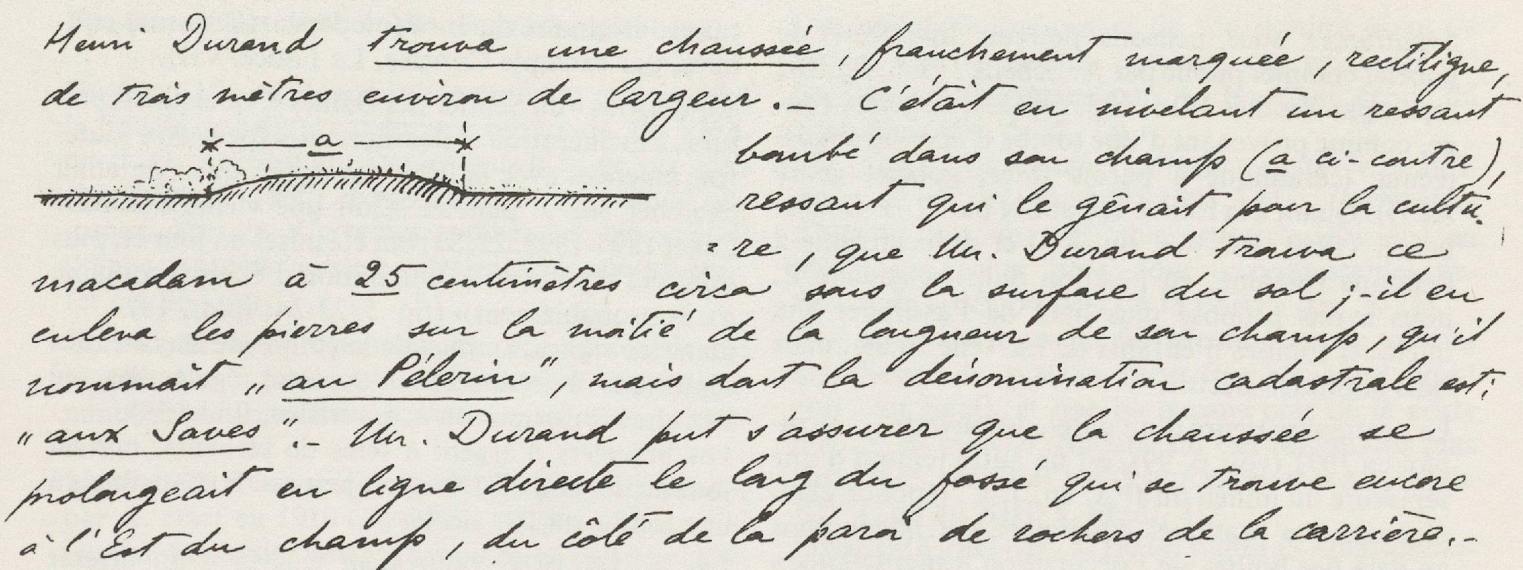 Henri Durand trouva une chaussée, franchement marquée, rectiligne,
de trois mètres environ de largeur.– C'était en nivelant un ressaut
a
bombé dans son champ (a ci-contre),
ressaut qui le gênait pour la cultu-
=re, que Mr. Durand trouva ce
macadam à 25 centimètres circa sous la surface du sol ;-il en
enleva les pierres sur la moitié de la longueur de son champ, qu'il
nommait „au Pélerin", mais dont la dénomination cadastrale est:
"aux Saves".– Mr. Durand put s'assurer que la chaussée se
prolongeait en ligne directe le long du fossé qui se trouve encore
à l'Est du champ, du côté de la paroi de rochers de la carrière.-